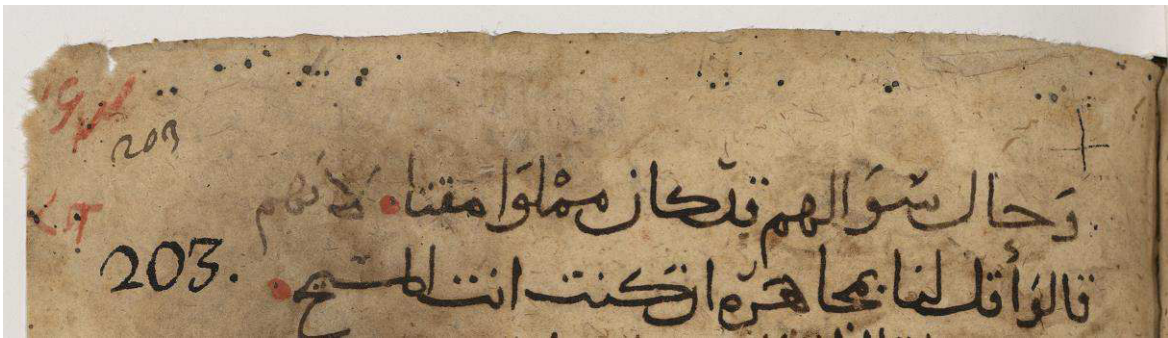 203
وحال سوالهم قد كان مملوا مقتا لانهم
203.
قالوا قل لنا بمجاهره ان كنت انت المسيح